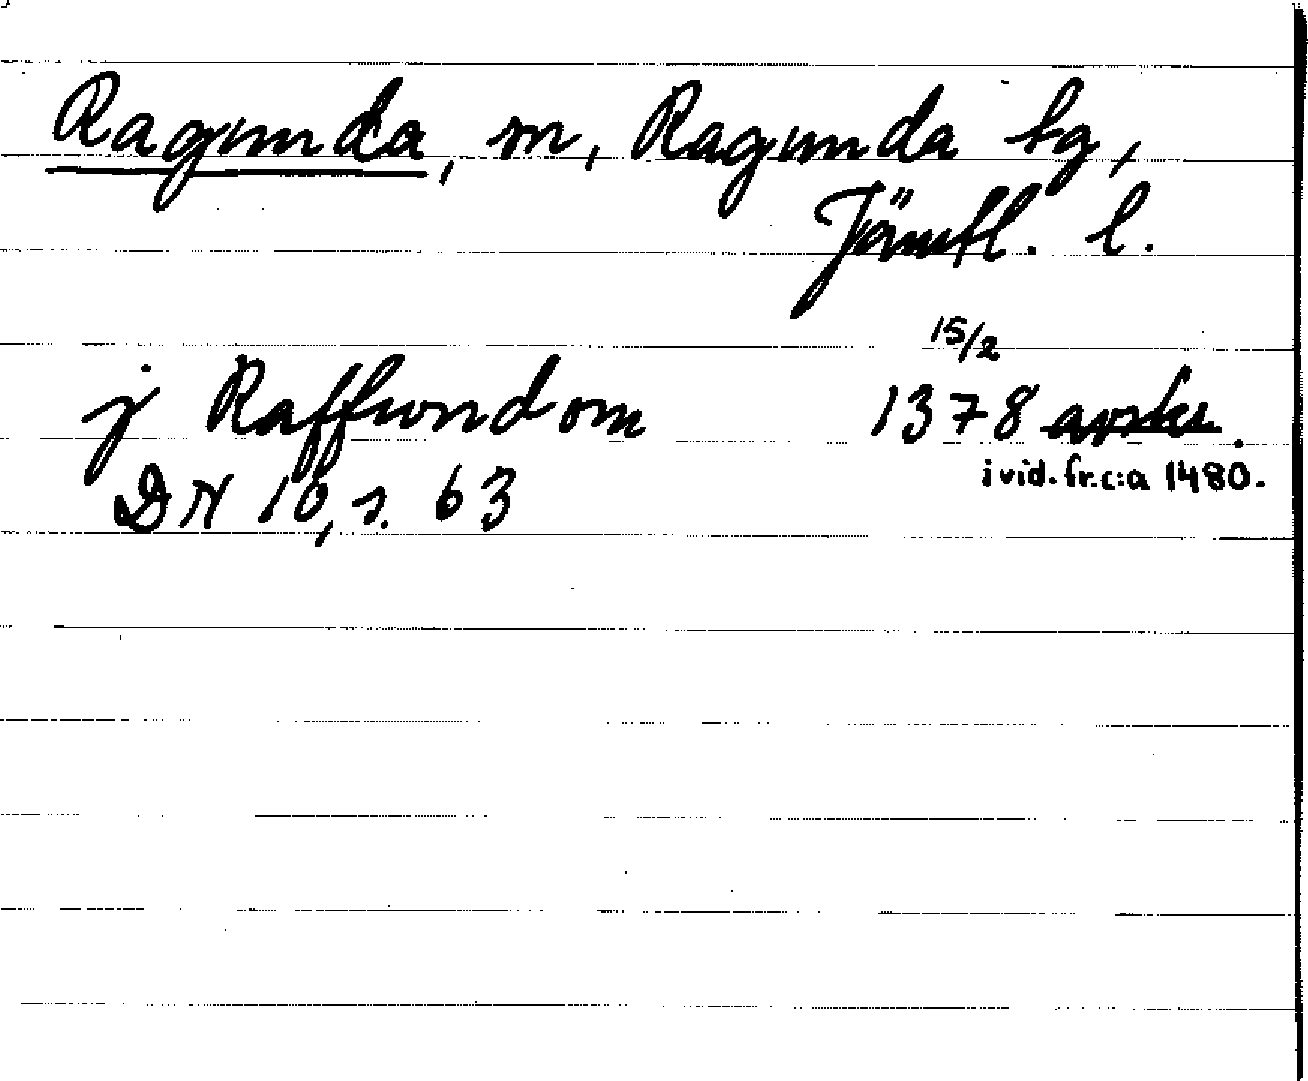 Ragunda, sn, Ragunda tg,
Jämtl. l.
15/2
j Raffwndom 1378 avskr.
i vid. fr. c:a 1480.
DN 16, s. 63